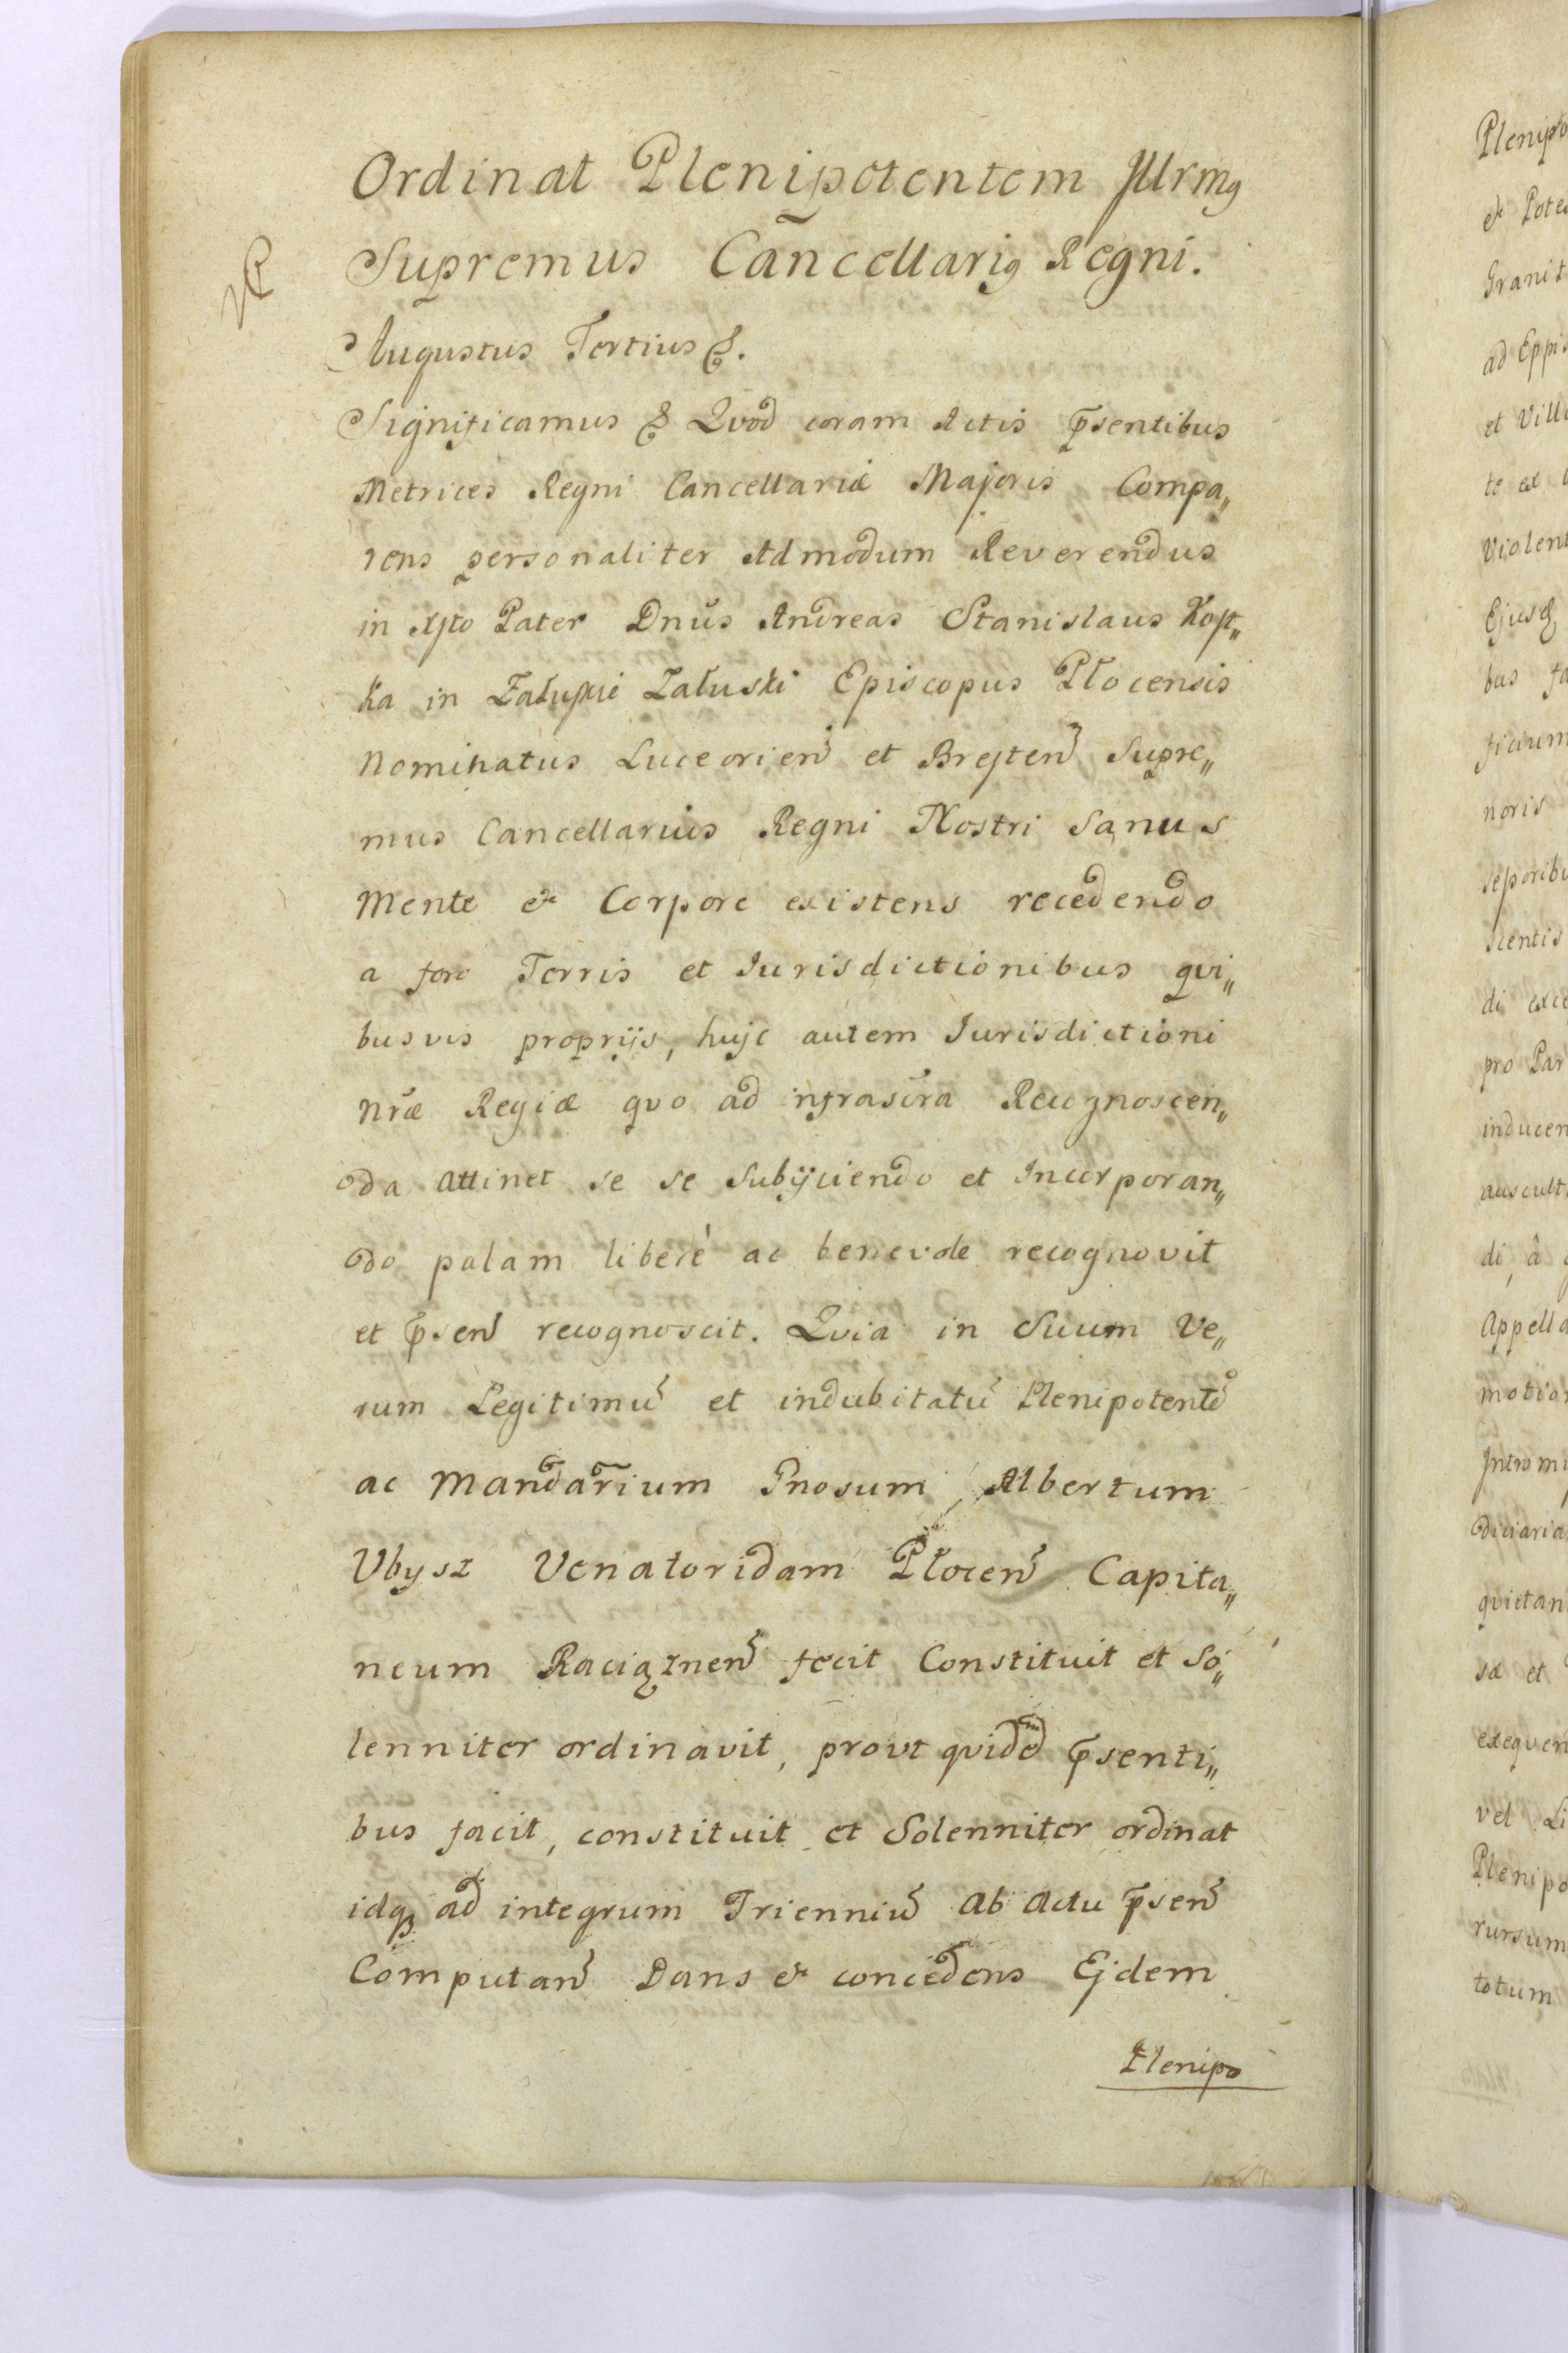 Ordinat Plenipotentem Illrmꝰ
Supremus Cancellariꝰ Regni.
Augustus Tertius &.
Significamus & Qvod coram Actis p̄sentibus
Metrices Regni Cancellariæ Majoris Compa„
rens personaliter Admodum Reverendus
in Xto Pater Dnūs Andreas Stanislaus Kost„
ka in Załuskie Załuski Episcopus Płocensis
Nominatus Luceorien̄ et Bresten̄ Supre„
mus Cancellarius Regni Nostri Sanus
Mente & Corpore existens recedendo
a foro Terris et Iurisdictionibus qvi„
busvis proprijs, hujc autem Iurisdictioni
nr̄æ Regiæ qvo ad infrascr̄a Recognoscen„
da attinet se se Subijciendo et Incorporan„
do palam liberè ac benevole recognovit
et p̄sen̄ recognoscit. Qvia in Suum Ve„
rum Legitimū et indubitatū Plenipotentē
ac Mandār̄ium Gnosum Albertum
Ubysz Venatoridam Płocen̄ Capita„
neum Raciąznen̄ fecit Constituit et So„
lenniter ordinavit, provt qvidem p̄senti„
bus facit, constituit et Solenniter ordinat
idqꝫ ad integrum Trienniū ab Actu p̄sen̄
Computan̄ Dans & concedens Ejdem
Plenipo
Plenipo
& Pote
Granit
ad Eppis
et Vill
te ex
Violent
Ejusqꝫ
bus fa
ficium
noris
seporibu
scentis
di exce
pro Par
inducen
auscult
di, â
Appella
motio
Intromi
diciaria
qvietan
sæ et
exeqven
vel Li
Plenipo
rursum
totum